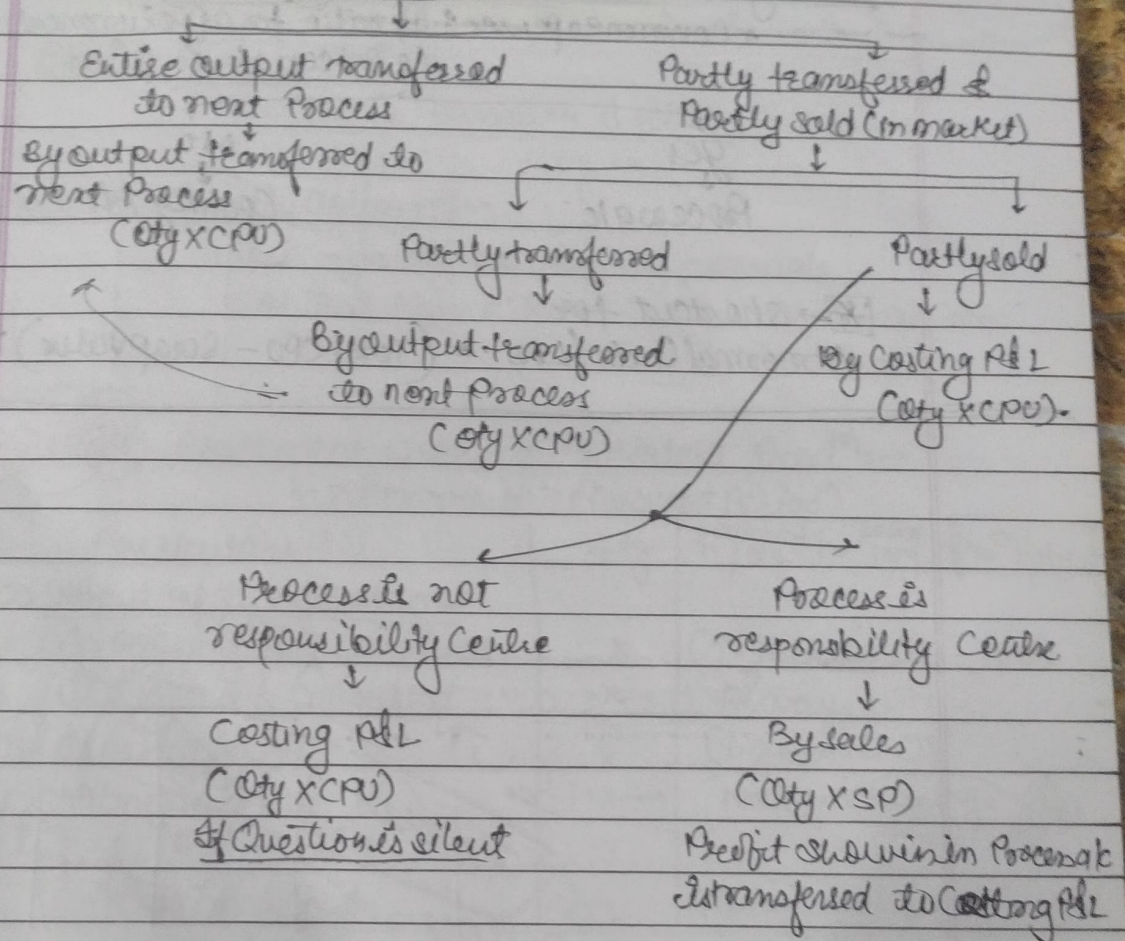 Entire output transferred
to next Process
By output transferred to
next Process
(Qty X CPU)
Partly transferred &
Partly sold (in market)
Partly transferred
By output transferred
to next Process
(Qty X CPU)
Partly sold
By Costing P&L
(Qty X CPU).
Process is not
responsibility Centre
Costing P&L
(Qty X CPU)
If Question is silent
Process is
responsbility Centre
By sales
(Qty X SP)
Profit shown in Process a/c
is transferred to Costing P&L